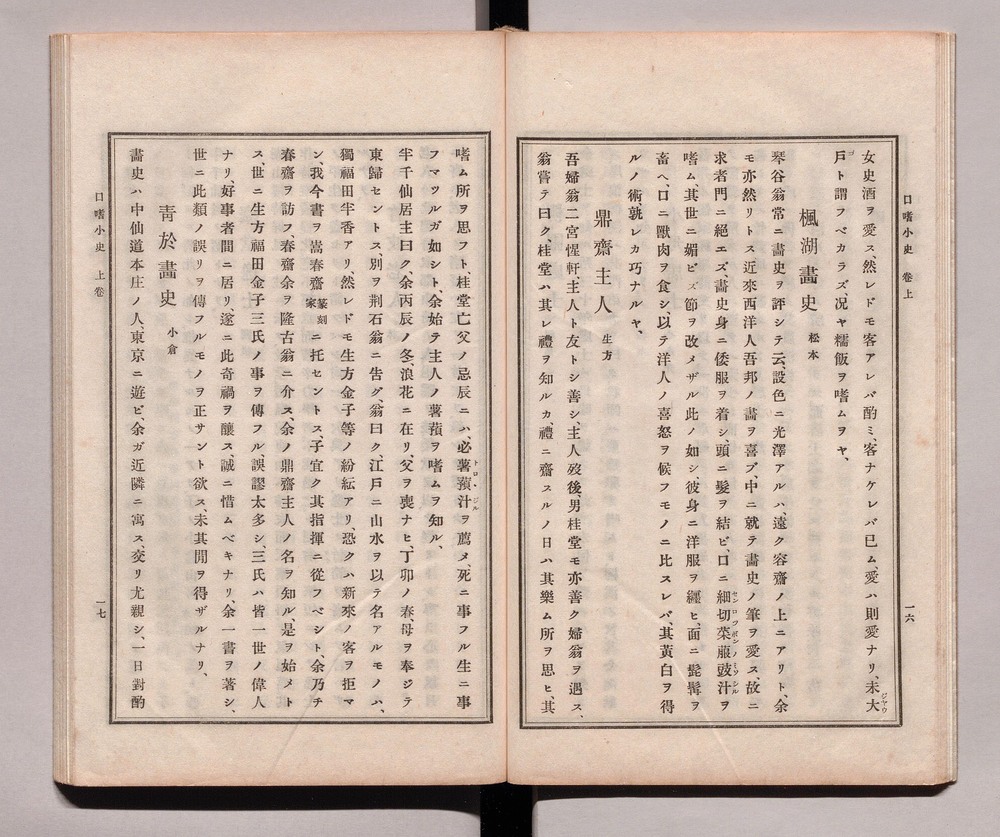 口嗜小史 卷上
一六
女史酒ヲ愛ス、然レドモ客アレバ酌ミ、客ナケレバ已ム、愛ハ則愛ナリ、未大
戸ト謂フベカラズ、况ヤ糯飯ヲ嗜ムヲヤ、
楓湖畫史 松本
琴谷翁常ニ畫史ヲ評シテ云、設色ニ光澤アルハ、遠ク容齋ノ上ニアリト、余
モ亦然リトス、近來西洋人吾邦ノ畫ヲ喜ブ、中ニ就テ畫史ノ筆ヲ愛ス、故ニ
求者門ニ絕エズ、畫史身ニ倭服ヲ着シ、頭ニ髮ヲ結ビ、口ニ細切菜菔豉汁ヲ
嗜ム、其世ニ媚ビズ節ヲ改メザル此ノ如シ、彼身ニ洋服ヲ纒ヒ、面ニ髭髯ヲ
畜ヘ、口ニ獸肉ヲ食シ、以テ洋人ノ喜怒ヲ候フモノニ比スレバ、其黃白ヲ得
ルノ術孰レカ巧ナルヤ、
鼎齋主人 生方
吾婦翁二宮惺軒、主人ト友トシ善シ、主人歿後、男桂堂モ亦善ク婦翁ヲ遇ス、
翁嘗テ曰ク、桂堂ハ其レ禮ヲ知ルカ、禮ニ齋スルノ日ハ其樂ム所ヲ思ヒ、其
嗜ム所ヲ思フト、桂堂亡父ノ忌辰ニハ、必薯蕷汁ヲ薦メ、死ニ事フル生ニ事
フマツルガ如シト、余始テ主人ノ薯蕷ヲ嗜ムヲ知ル、
半千仙居主曰ク、余丙辰ノ冬、浪花ニ在リ、父ヲ喪ナヒ、丁卯ノ春、母ヲ奉ジテ
東歸セントス、別ヲ荆石翁ニ告グ、翁曰ク、江戸ニ山水ヲ以テ名アルモノハ、
獨福田半香アリ、然レドモ生方金子等ノ紛紜アリ、恐クハ新來ノ客ヲ拒マ
ン、我今書ヲ嵩春齋篆刻家ニ托セントス、子宜ク其指揮ニ從フベシト、余乃チ
春齋ヲ訪フ、春齋余ヲ隆古翁ニ介ス、余ノ鼎齋主人ノ名ヲ知ル、是ヲ始メト
ス、世ニ生方福田金子三氏ノ事ヲ傳フル、誤謬太多シ、三氏ハ皆一世ノ偉人
ナリ、好事者間ニ居リ、遂ニ此奇禍ヲ釀ス、誠ニ惜ムベキナリ、余一書ヲ著シ、
世ニ此類ノ誤リヲ傳フルモノヲ正サント欲ス、未其閒ヲ得ザルナリ、
靑於畫史 小倉
畫史ハ中仙道本庄ノ人、東京ニ遊ビ、余ガ近隣ニ寓ス、交リ尤親シ、一日對酌
口嗜小史 上卷
一七